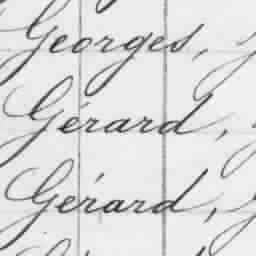 Georges,
Gérard,
Gérard,